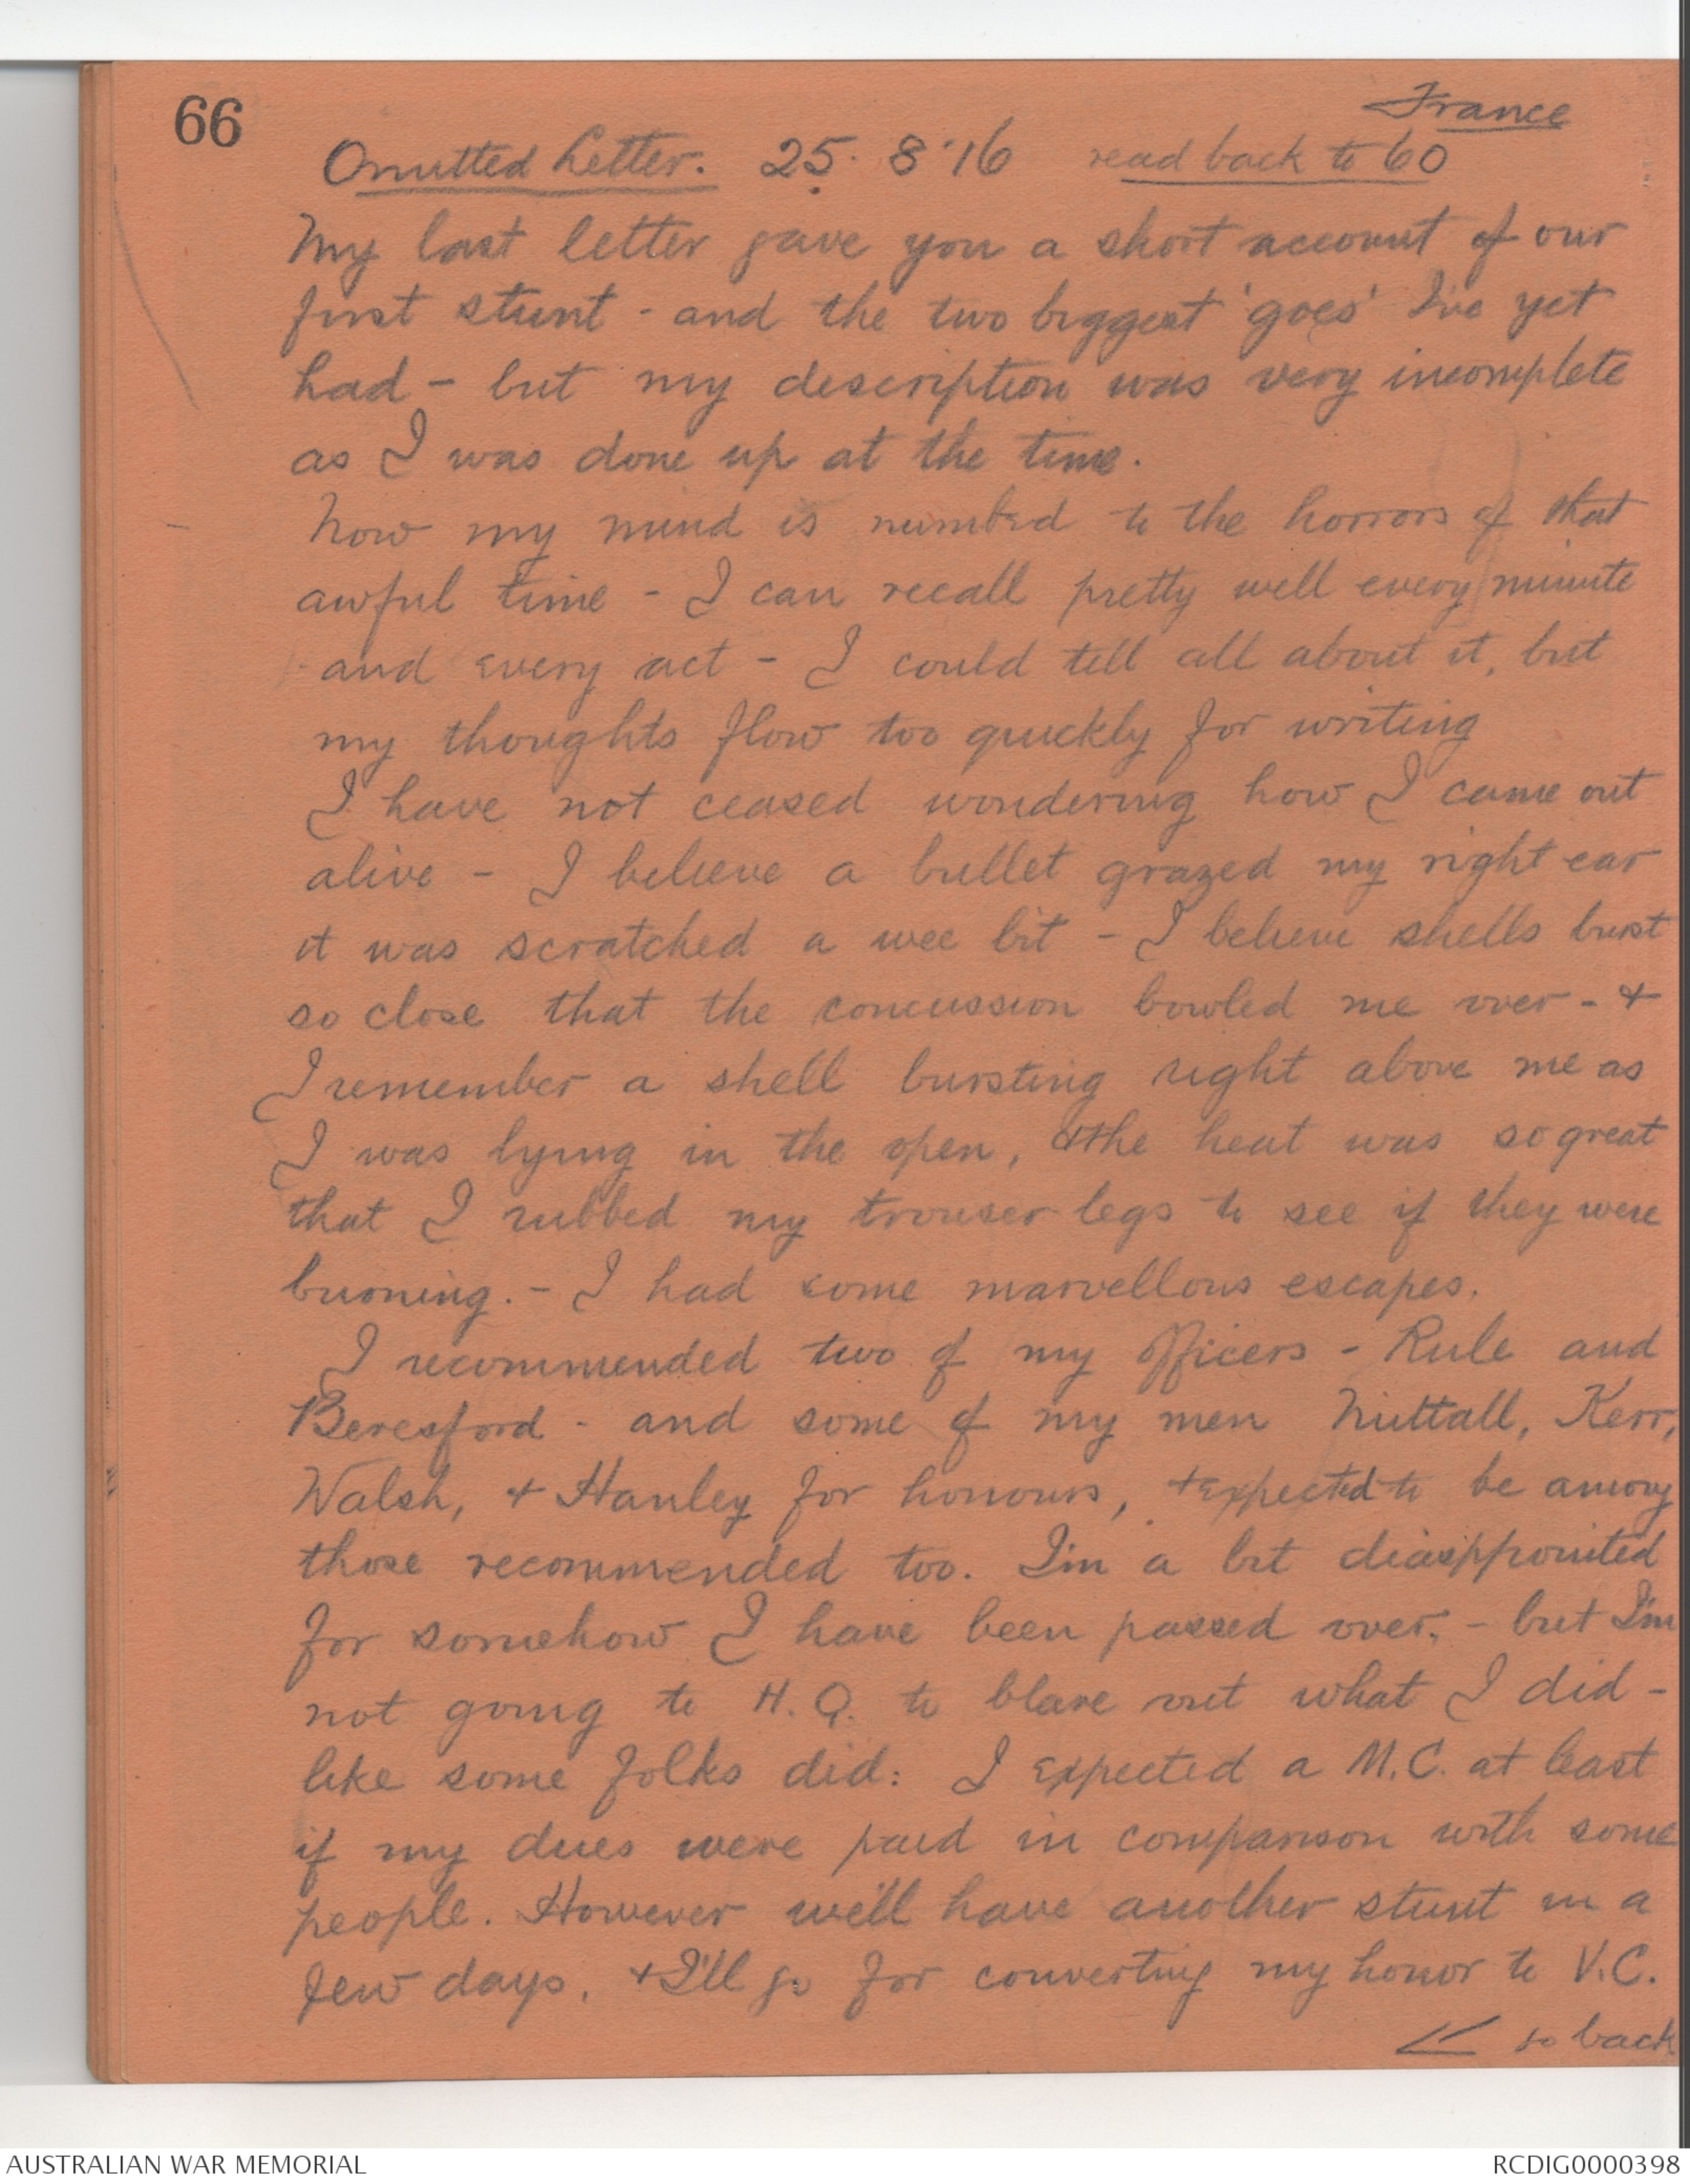 66
France
Omitted Letter. 25. 8. '16 read back to 60
My last letter gave you a short account of our
first stunt - and the two biggest 'goes' I've yet
had - but my description was very incomplete
as I was done up at the time.
Now my mind is numbed to the horrors of that
awful time - I can recall pretty well every minute
and every act - I could tell all about it, but
my thoughts flow too quickly for writing
I have not ceased wondering how I came out
alive - I believe a bullet grazed my right ear
it was scratched a wee bit - I believe shells burst
so close that the concussion bowled me over - &
I remember a shell bursting right above me as
I was lying in the open, & the heat was so great
that I rubbed my trouser legs to see if they were
burning. - I had some marvellous escapes.
I recommended two of my officers - Rule and
Beresford - and some of my men Nuttall, Kerr,
Walsh, & Hanley for honours, & expected to be among
those recommended too. I'm a bit disappointed
for somehow I have been passed over, - but I'm
not going to H.Q. to blare out what I did -
like some folks did: I expected a M.C. at least
if my dues were paid in comparison with some
people. However we'll have another stunt in a
few days, & I'll go for converting my honor to V.C.
back
AUSTRALIAN WAR MEMORIAL
RCDIG0000398